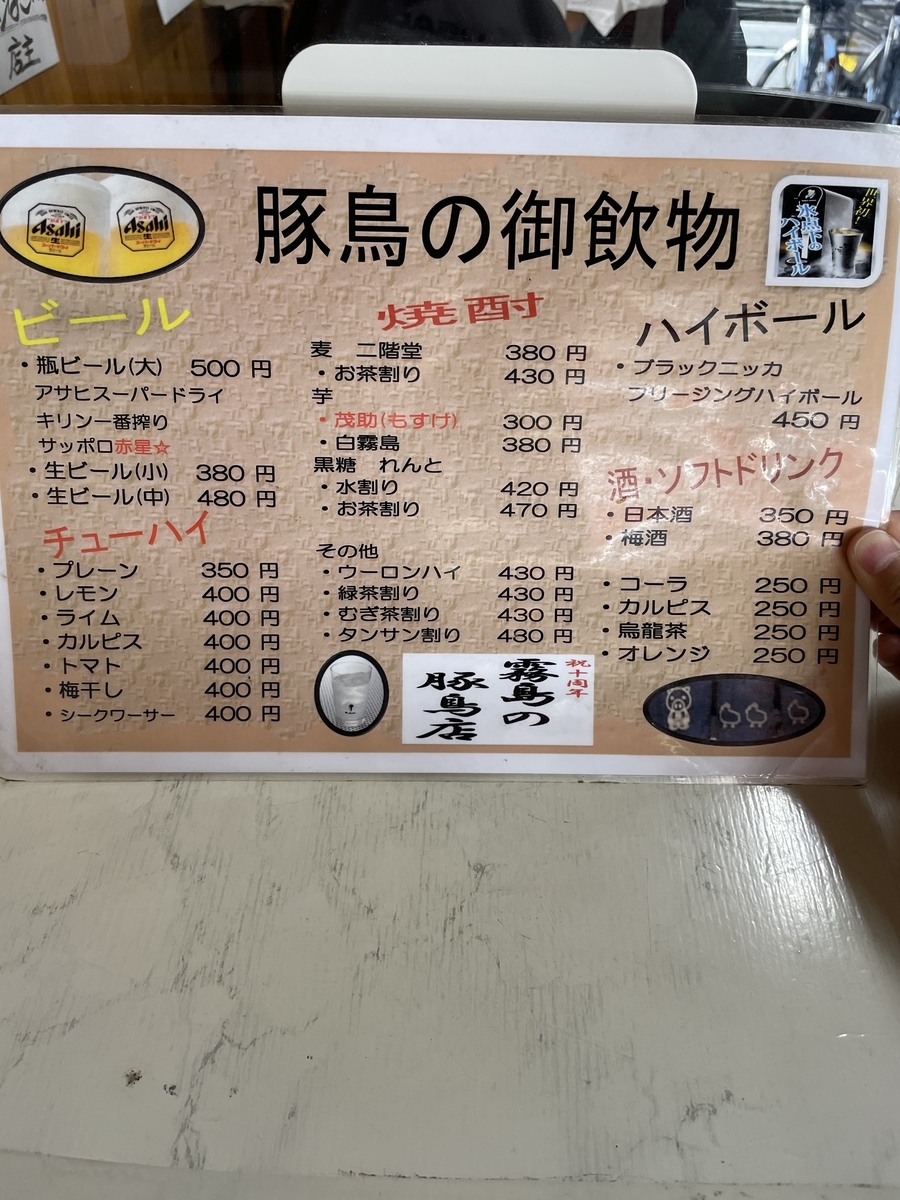 豚鳥の御飲物
Asahi
生
Asahi
生
世界初!
氷点下の
ハイボール
ビール
・瓶ビール(大) 500 円
アサヒスーパードライ
キリン一番搾り
サッポロ赤星☆
・生ビール(小) 380 円
・生ビール(中) 480 円
チューハイ
・プレーン 350 円
・レモン 400 円
・ライム 400 円
・カルピス 400 円
・トマト 400 円
・梅干し 400 円
・シークワーサー 400 円
焼酎
麦 二階堂 380 円
・お茶割り 430 円
芋
・茂助(もすけ) 300 円
・白霧島 380 円
黒糖 れんと
・水割り 420 円
・お茶割り 470 円
その他
・ウーロンハイ 430 円
・緑茶割り 430 円
・むぎ茶割り 430 円
・タンサン割り 480 円
祝十周年
霧島の
豚鳥店
ハイボール
・ブラックニッカ
フリージングハイボール
450 円
酒・ソフトドリンク
・日本酒 350 円
・梅酒 380 円
・コーラ 250 円
・カルピス 250 円
・烏龍茶 250 円
・オレンジ 250 円